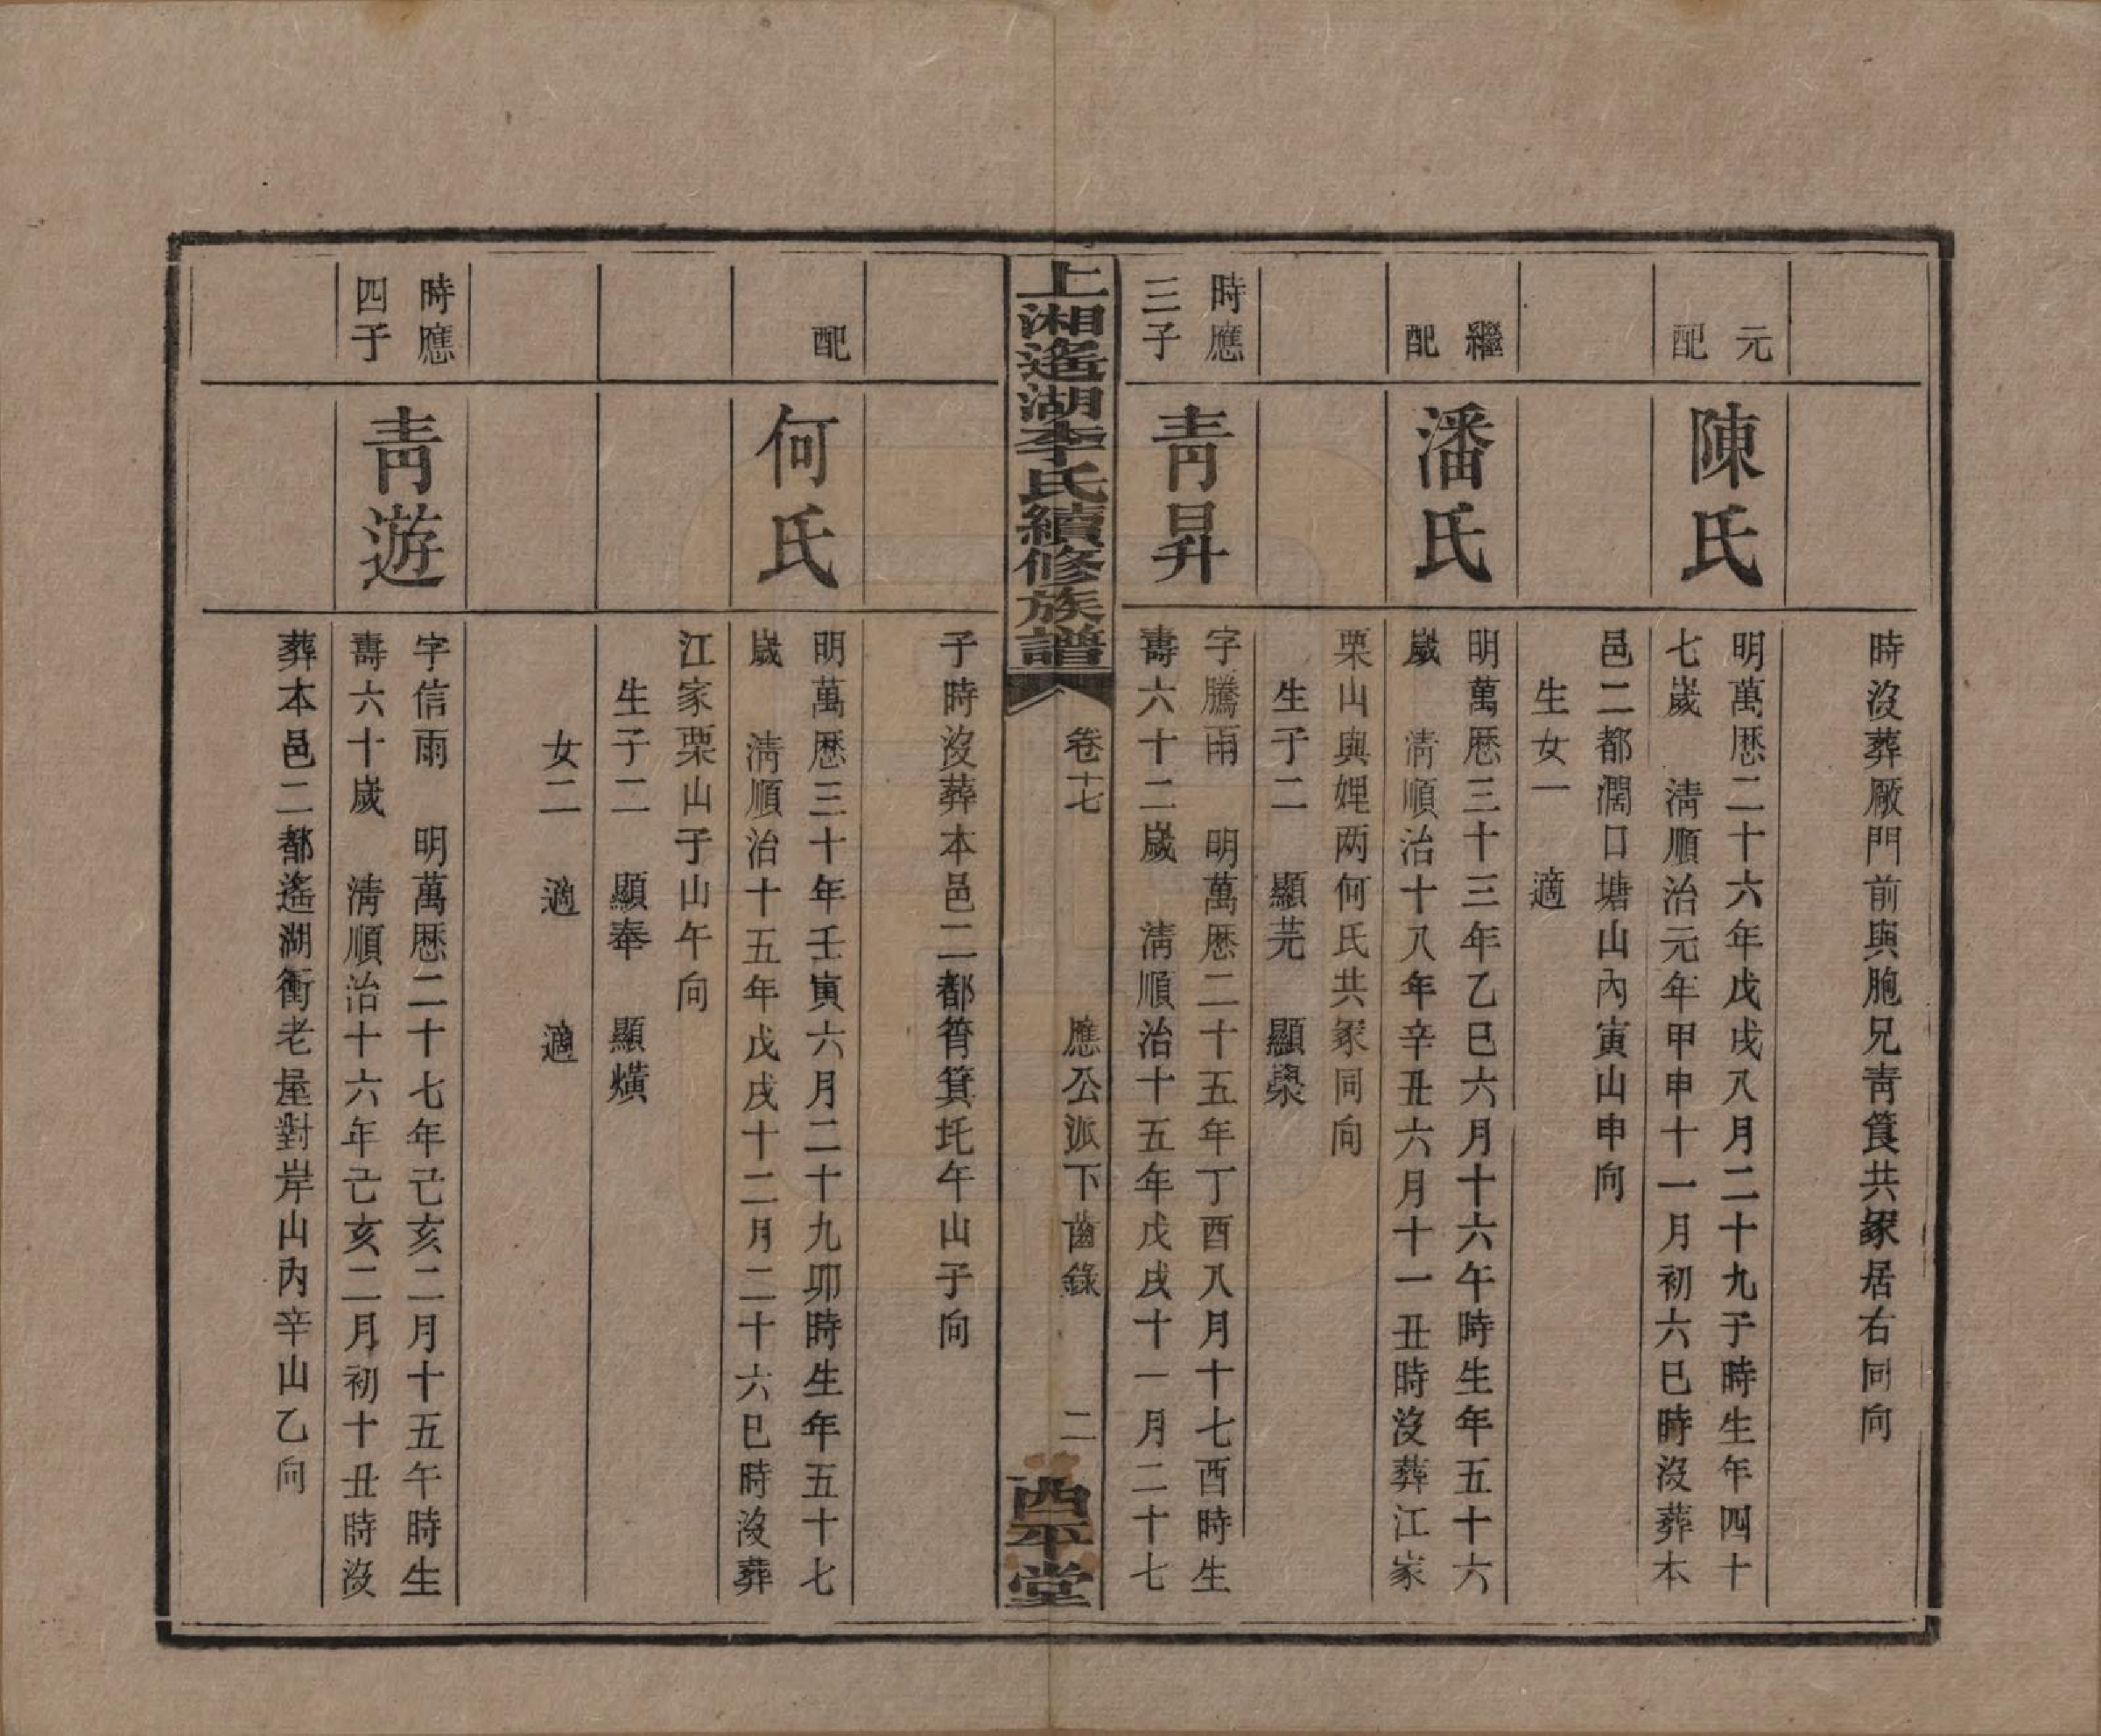 時沒葬厰門前與胞兄靑篢共冢居右同向
元配
陳氏
明萬厯二十六年戊戌八月二十九子時生年四十
七嵗　淸順治元年甲申十一月初六巳時沒葬本
邑二都濶口塘山內寅山申向
生女一　適
繼配
潘氏
明萬厯三十三年乙巳六月十六午時生年五十六
嵗　淸順治十八年辛丑六月十一丑時沒葬江家
栗山與娌两何氏共冢同向
生子二　顯芫　顯梷
時應三子
靑昇
字騰雨　明萬厯二十五年丁酉八月十七酉時生
壽六十二嵗　淸順治十五年戊戌十一月二十七
上湘遙湖李氏續修族譜
卷十七
應公派下齒錄
二
西平堂
子時沒葬本邑二都筲箕坉午山子向
配
何氏
明萬厯三十年壬寅六月二十九卯時生年五十七
嵗　淸順治十五年戊戌十二月二十六巳時沒葬
江家栗山子山午向
生子二　顯奉　顯熿
女二　適　適
時應四子
靑遊
字信雨　明萬厯二十七年己亥二月十五午時生
壽六十嵗　淸順治十六年己亥二月初十丑時沒
葬本邑二都遙湖衝老屋對岸山內辛山乙向